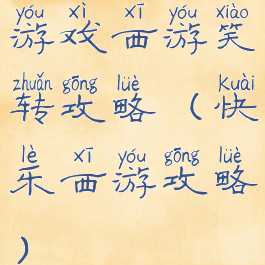 yóu xì xī yóu xiào
游戏西游笑
zhuǎn gōng lüè kuài
转攻略(快
lè xī yóu gōng lüè
乐西游攻略
)